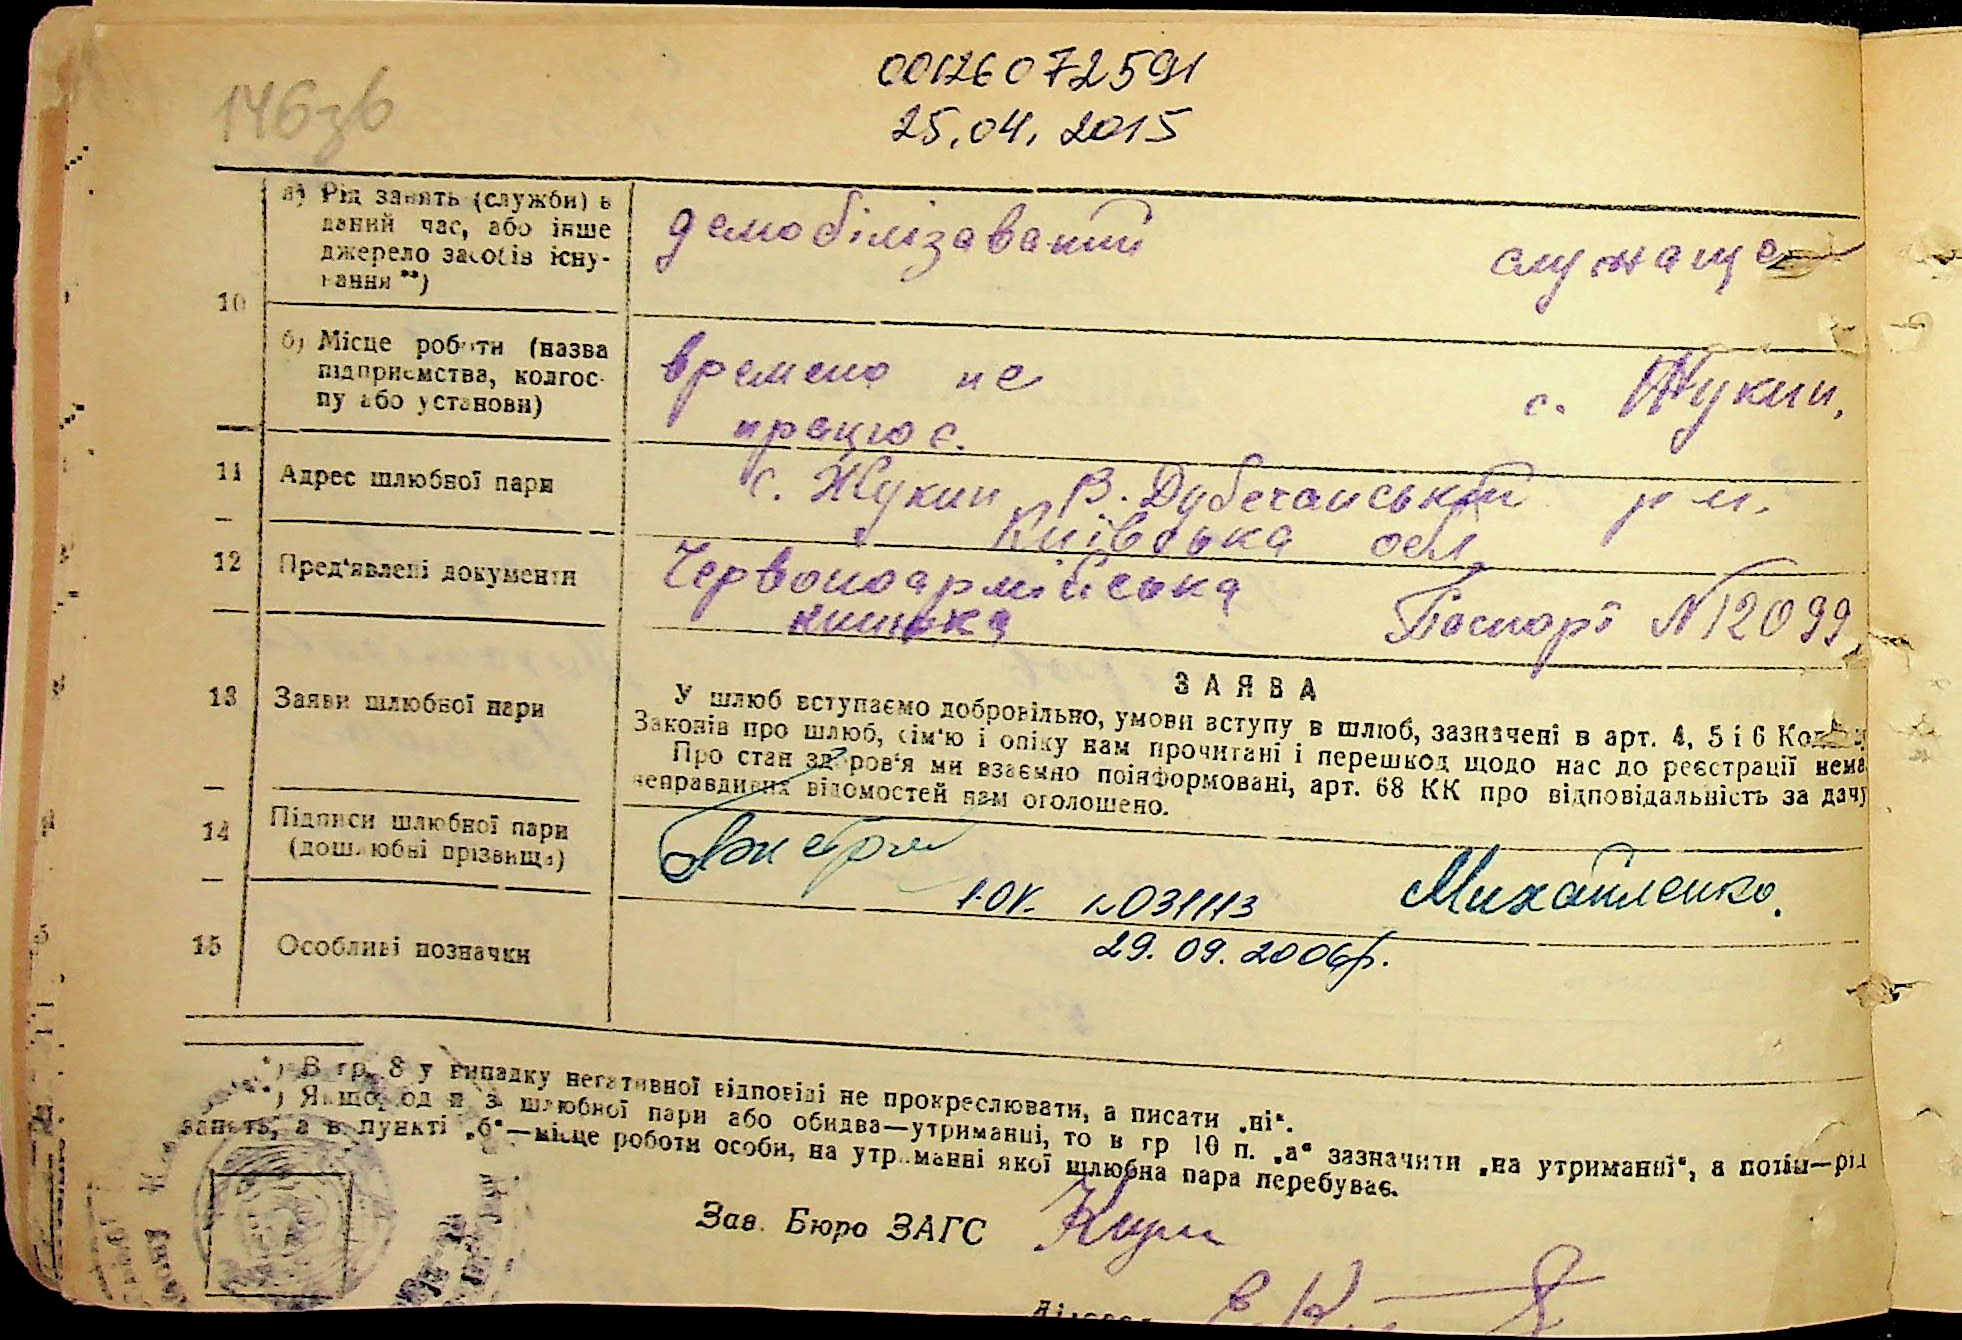 00126072591
146зв
25.04.2015
10
а) Рід занять (служби) в
даний час, або інше
джерело засобів існу-
вання **)
демобілізаваний
служаща
б) Місце роботи (назва
підприємства, колгос-
пу або установи)
времено не
працює.
с. Жукин,
11
Адрес шлюбної пари
с. Жукин В. Дубечанський р-н.
Київська обл.
12
Пред'явлені документи
Червоноармійська
книжка
Паспорт №12099
13
Заяви шлюбної пари
ЗАЯВА
У шлюб вступаємо добровільно, умови вступу в шлюб, зазначені в арт. 4, 5 і 6
Законів про шлюб, сім'ю і опіку нам прочитані і перешкод щодо нас до реєстрації нема
Про стан здоров'я ми взаємно поінформовані, арт. 68 КК про відповідальність за дачу
неправдивих відомостей нам оголошено.
14
Підписи шлюбної пари
(дошлюбні прізвища)
Михайленко.
І-ОК. №031113
29.09.2006р.
15
Особливі позначки
*) В гр. 8 у випадку негативної відповіді не прокреслювати, а писати „ні“.
**) Якщо один з шлюбної пари або обидва—утриманці, то в гр 10 п. „а“ зазначити „на утриманні“, а потім—рід
занять, а в пункті „б“—місце роботи особи, на утриманні якої шлюбна пара перебуває.
Зав. Бюро ЗАГС